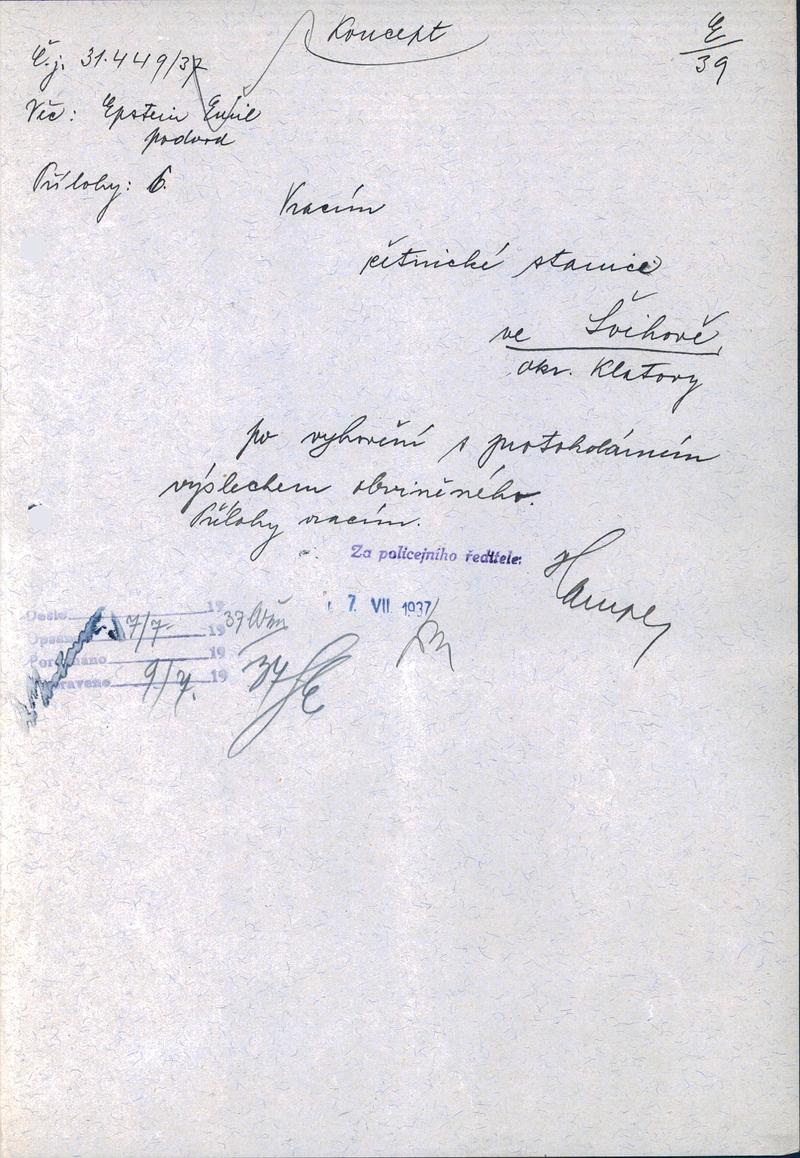 Koncept
E/39
Č.j. 31.449/37
Věc: Epstein Emil
podvod
Přílohy: 6.
Vracím
četnické stanici
ve Švihově,
okr. Klatovy
po vyhovění s protokolárním
výslechem obviněného.
Přílohy vracím.
Za policejního ředitele:
7. VII. 1937
Došlo 7/7 1937
Opsáno 19
Porovnáno 19
Vypraveno 9/7. 1937